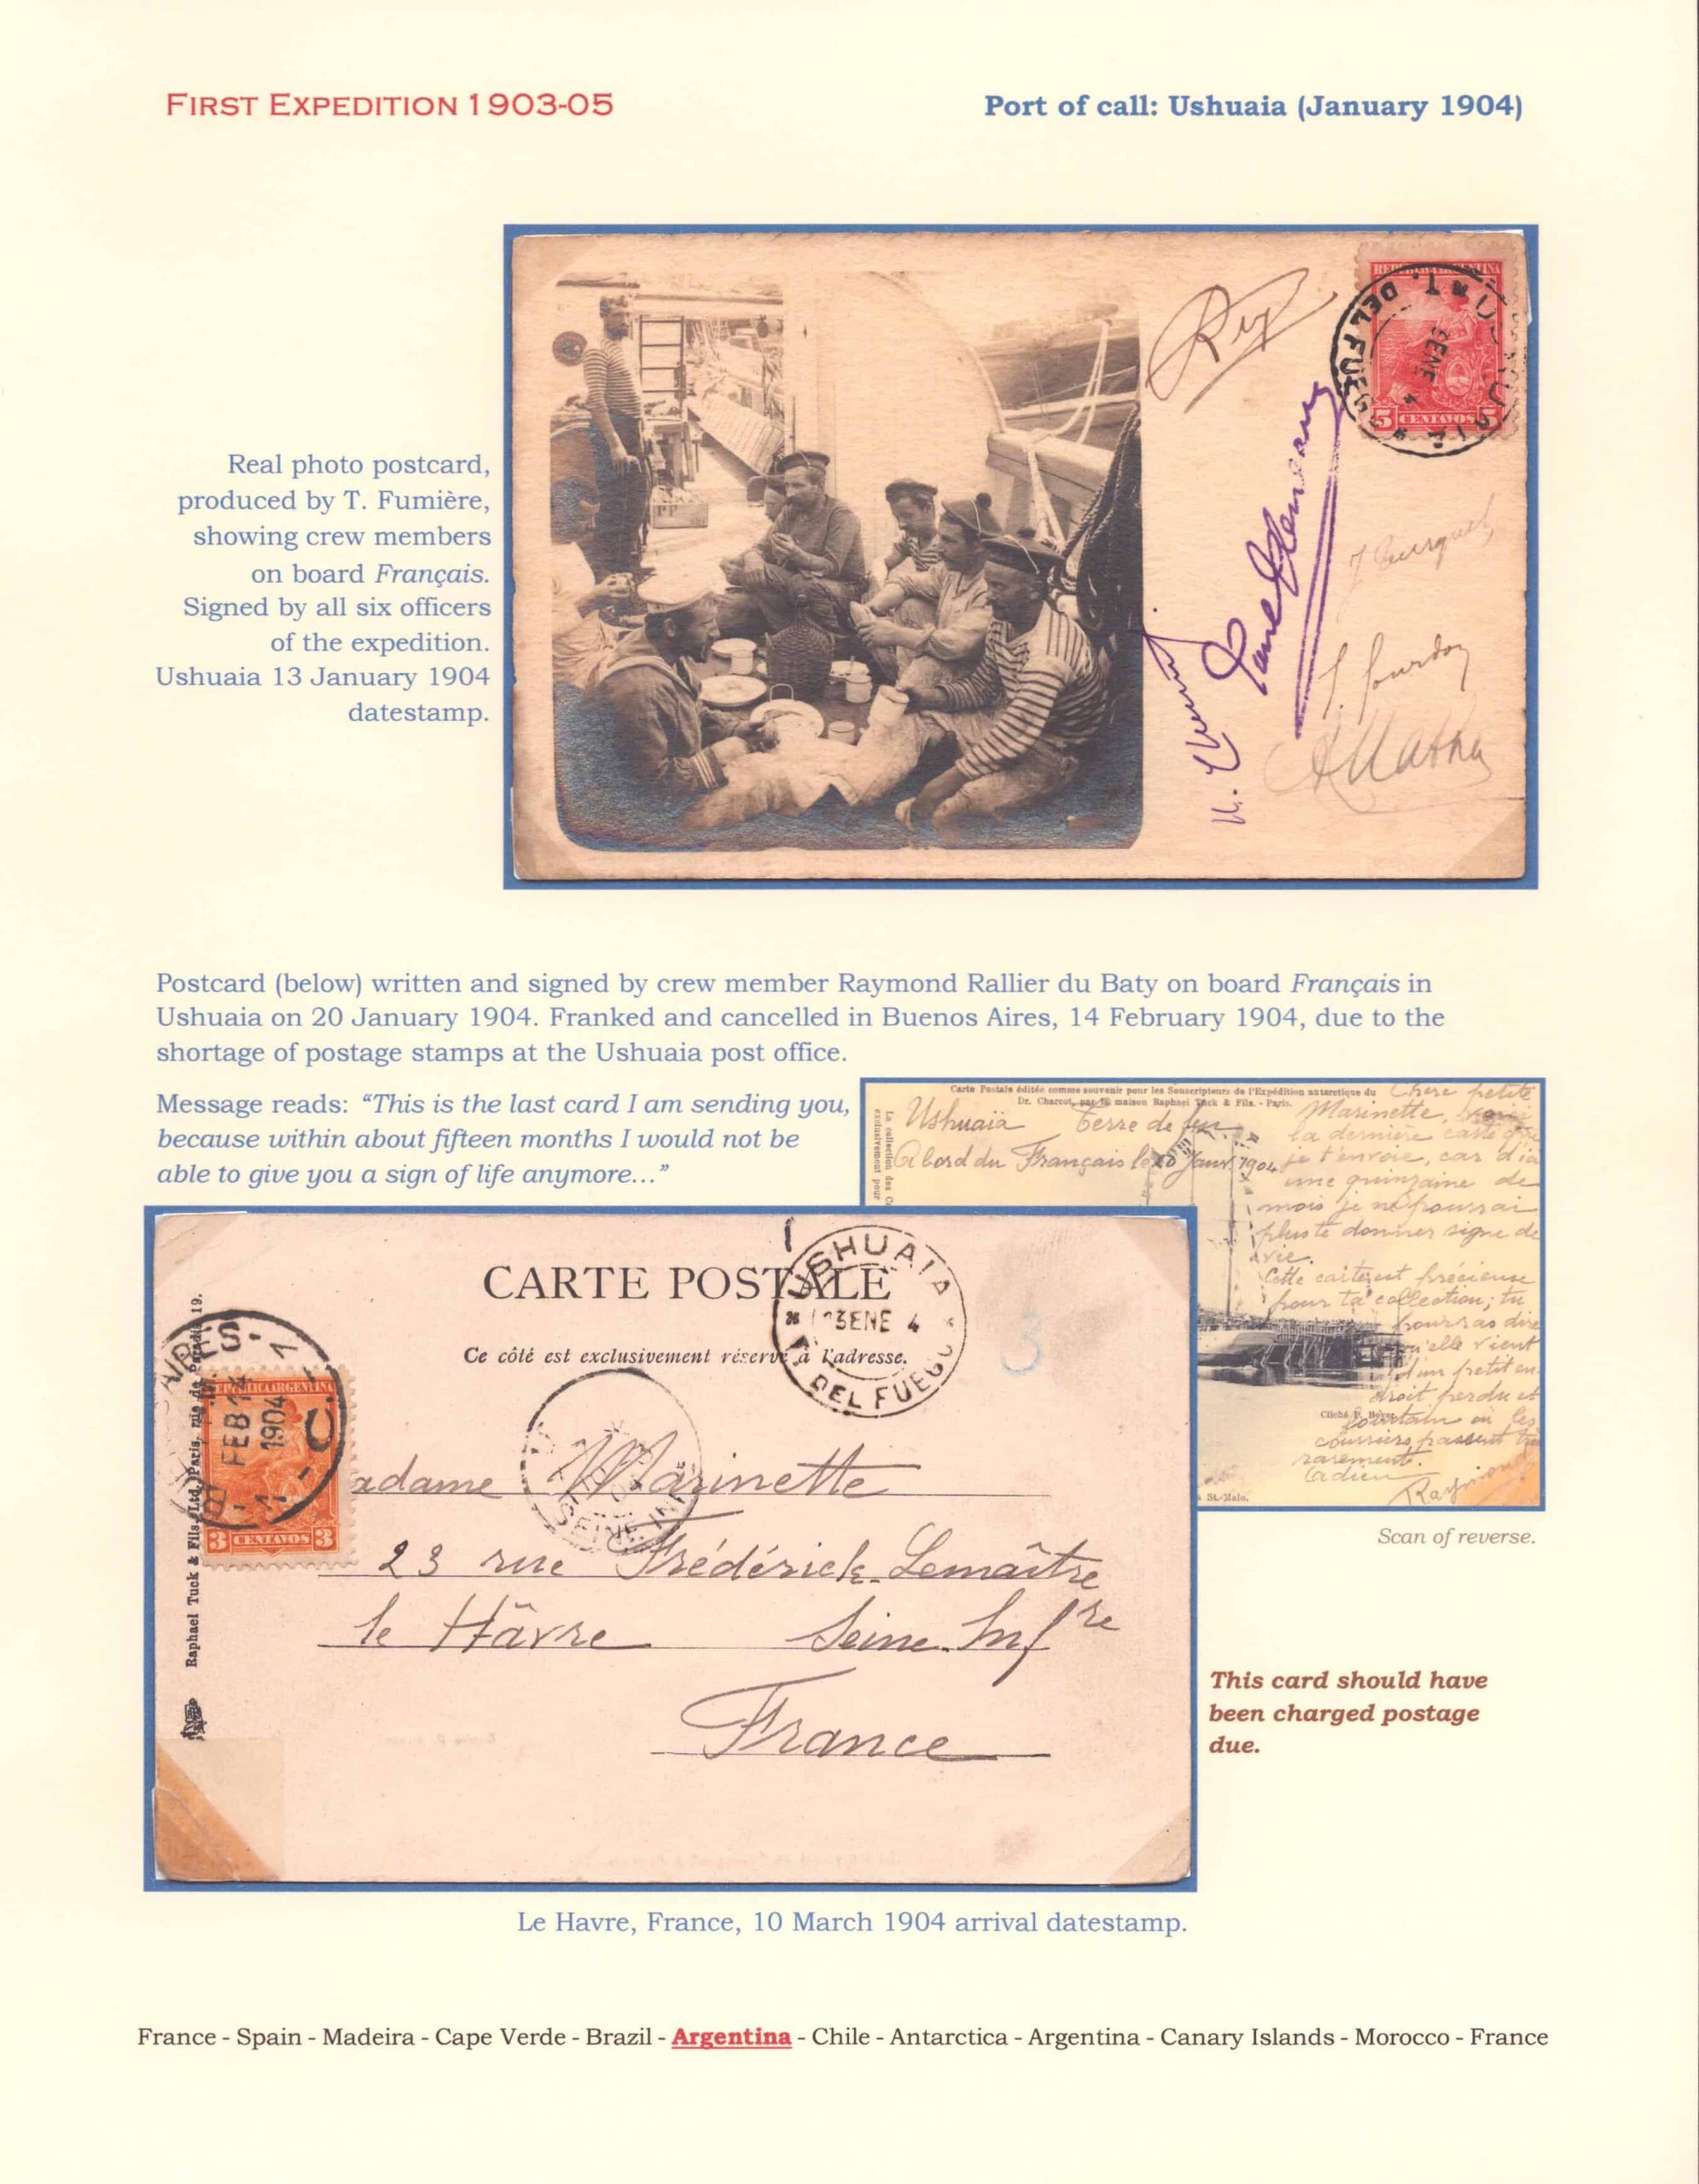 FIRST EXPEDITION 1903-05
Port of call: Ushuaia (January 1904)
REPUBLICA ARGENTINA
5 CENTAVOS 5
T. DEL FUEGO
ENE
Rey
J. Charcot
Paul Pléneau
J. Gourdon
AMatha
Real photo postcard,
produced by T. Fumière,
showing crew members
on board Français.
Signed by all six officers
of the expedition.
Ushuaia 13 January 1904
datestamp.
Postcard (below) written and signed by crew member Raymond Rallier du Baty on board Français in
Ushuaia on 20 January 1904. Franked and cancelled in Buenos Aires, 14 February 1904, due to the
shortage of postage stamps at the Ushuaia post office.
Message reads: “This is the last card I am sending you,
because within about fifteen months I would not be
able to give you a sign of life anymore...”
Carte Postale éditée comme souvenir pour les Souscripteurs de l'Expédition antarctique du
Dr. Charcot, par la maison Raphael Tuck & Fils. - Paris.
La collection des
exclusivement pour
Ushuaïa Terre de feu
A bord du Français le 20 Janv. 1904
Chère petite
Marinette,
la dernière carte que
je t'envoie, car d'ici
une quinzaine de
mois je ne pourrai
plus te donner signe de
vie.
Cette carte est précieuse
pour ta collection; tu
pourras dire
qu'elle vient
d'un petit en
droit perdu et
lointain où les
courriers passent très
rarement.
Adieu
Raymond
Cliché P.
St.-Malo.
CARTE POSTALE
Ce côté est exclusivement réservé à l'adresse.
USHUAIA
23 ENE 4
DEL FUEGO
3
AIRES
FEB 14
1904
REPUBLICA ARGENTINA
3 CENTAVOS 3
SEINE INF
Raphael Tuck & Fils, Ltd. Paris, rue de Paradis 19.
adame Marinette
23 rue Frédérick-Lemaître
le Hâvre Seine-Infre
France
Scan of reverse.
This card should have
been charged postage
due.
Le Havre, France, 10 March 1904 arrival datestamp.
France - Spain - Madeira - Cape Verde - Brazil - Argentina - Chile - Antarctica - Argentina - Canary Islands - Morocco - France